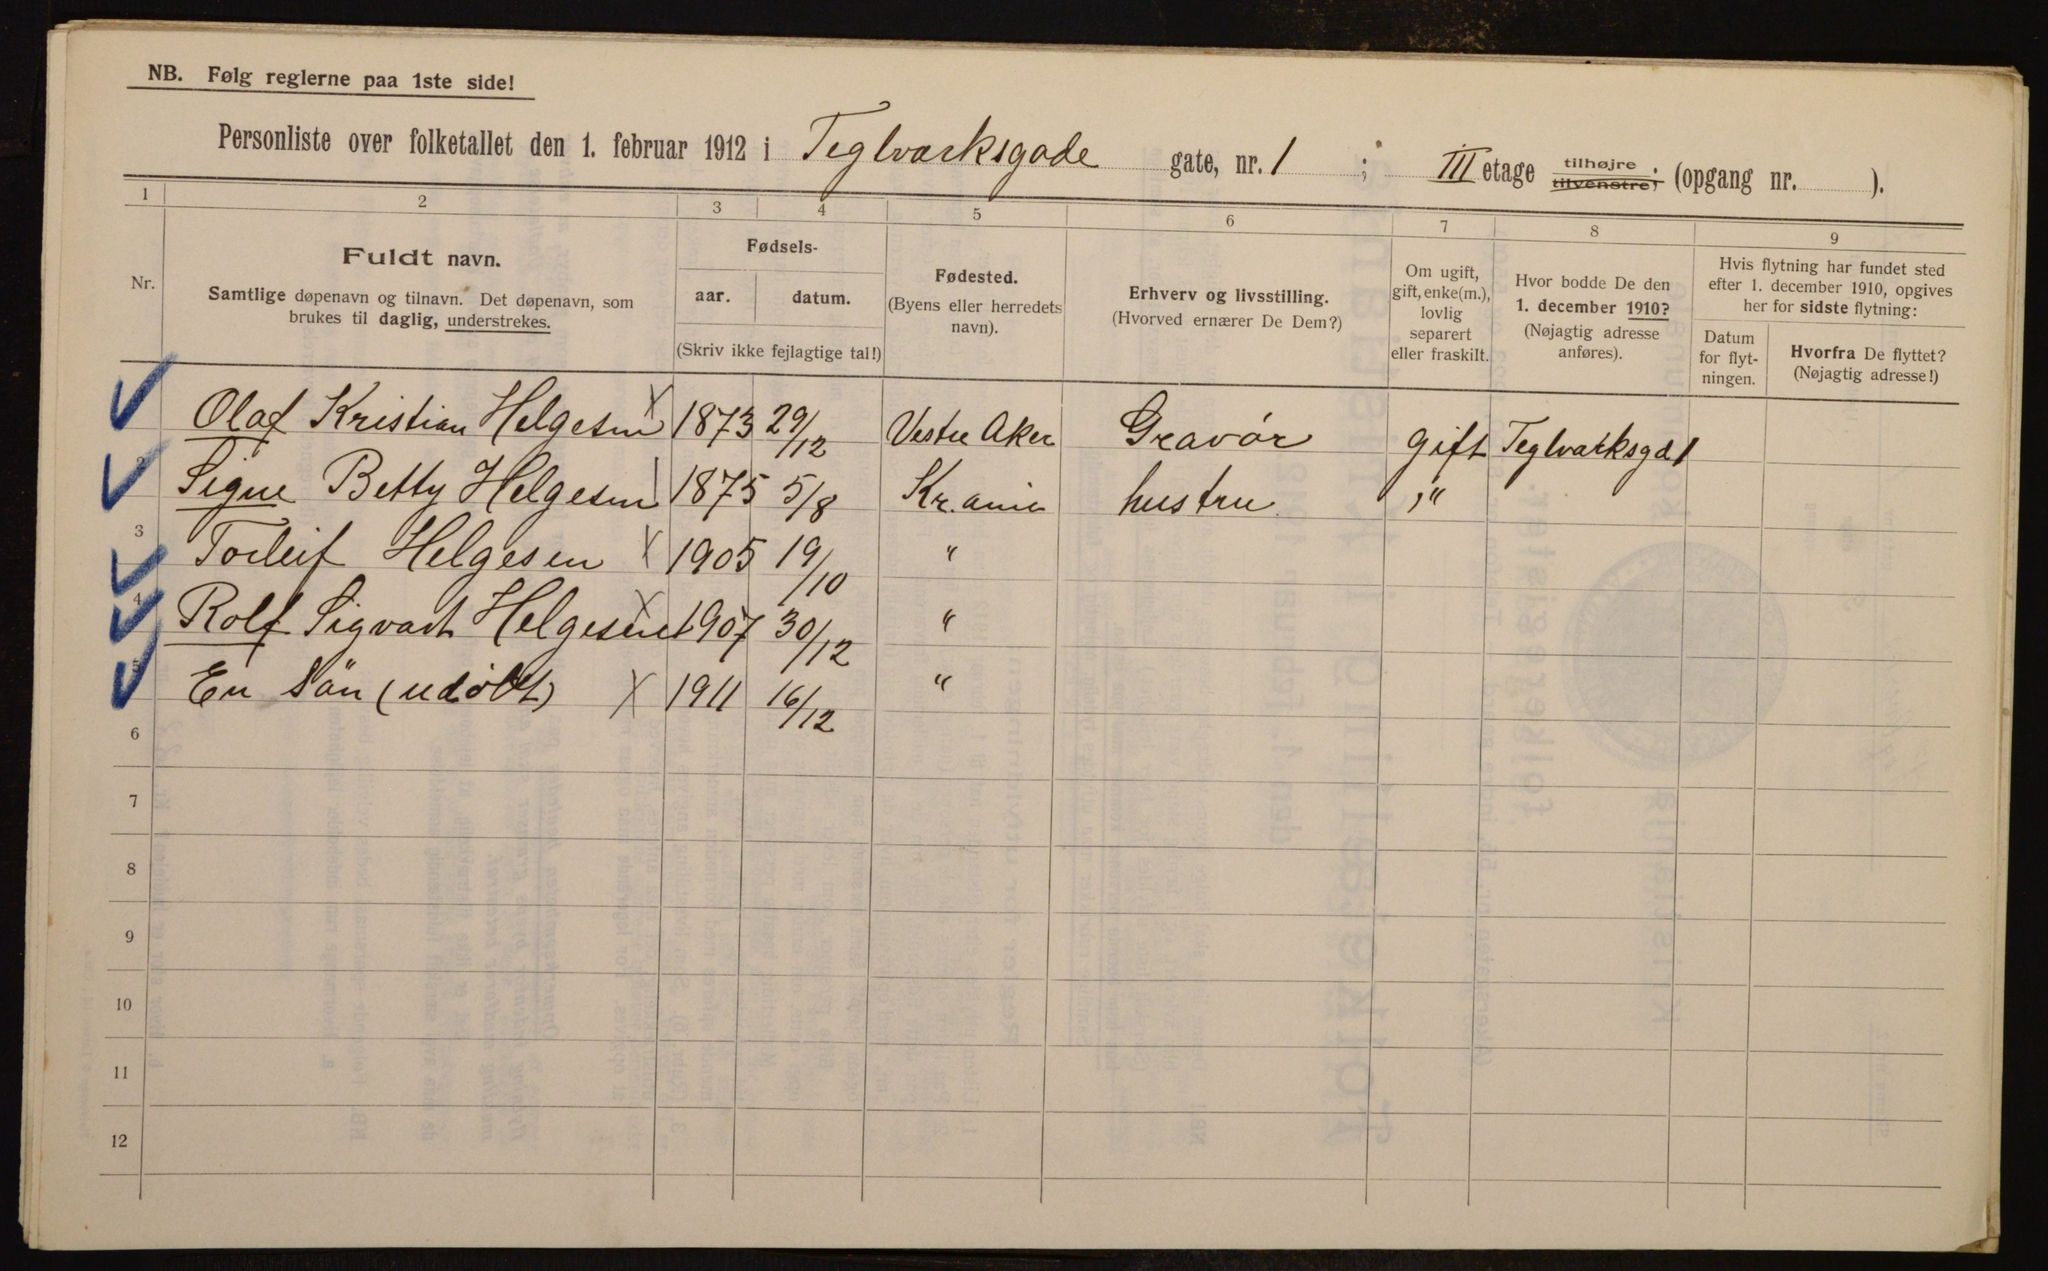 NB. Følg reglerne paa 1ste side!
Personliste over folketallet den 1. februar 1912 i Teglværksgade gate, nr. 1 ; III etage tilhøjre, tilvenstre, (opgang nr. ).
1 2 3 4 5 6 7 8 9
Nr.
Fuldt navn.
Samtlige døpenavn og tilnavn. Det døpenavn, som
brukes til daglig, understrekes.
Fødsels-
aar. datum.
(Skriv ikke fejlagtige tal!)
Fødested.
(Byens eller herredets
navn).
Erhverv og livsstilling.
(Hvorved ernærer De Dem?)
Om ugift,
gift, enke(m.),
lovlig
separert
eller fraskilt.
Hvor bodde De den
1. december 1910?
(Nøjagtig adresse
anføres).
Hvis flytning har fundet sted
efter 1. december 1910, opgives
her for sidste flytning:
Datum
for flyt-
ningen.
Hvorfra De flyttet?
(Nøjagtig adresse!)
Olaf Kristian Helgesen X 1873 29/12 Vestre Aker Gravør gift Teglværksgd 1
2 Signe Betty Helgesen | 1875 5/8 Kr.ania hustru "
3 Torleif Helgesen X 1905 19/10 "
4 Rolf Sigvart Helgesen X 1907 30/12 "
5 En sön (udøbt) X 1911 16/12 "
6
7
8
9
10
11
12